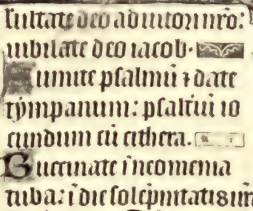 xultate deo adiutori nr̄o:
iubilate deo iacob·
Sumite psalmū ⁊ date
tẏmpanum: psalt̄iū io
cundum cū cithera.
Buccinate ī neomenia
tuba: ī die solēpnitatis ur̄